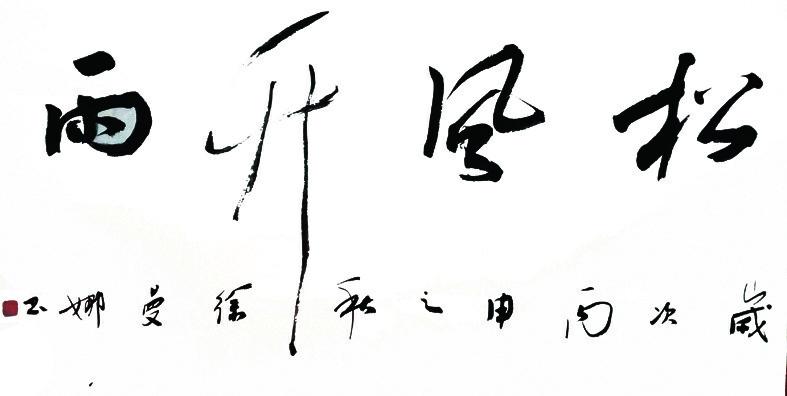 松風雨
歲次丙申之秋徐曼娜书